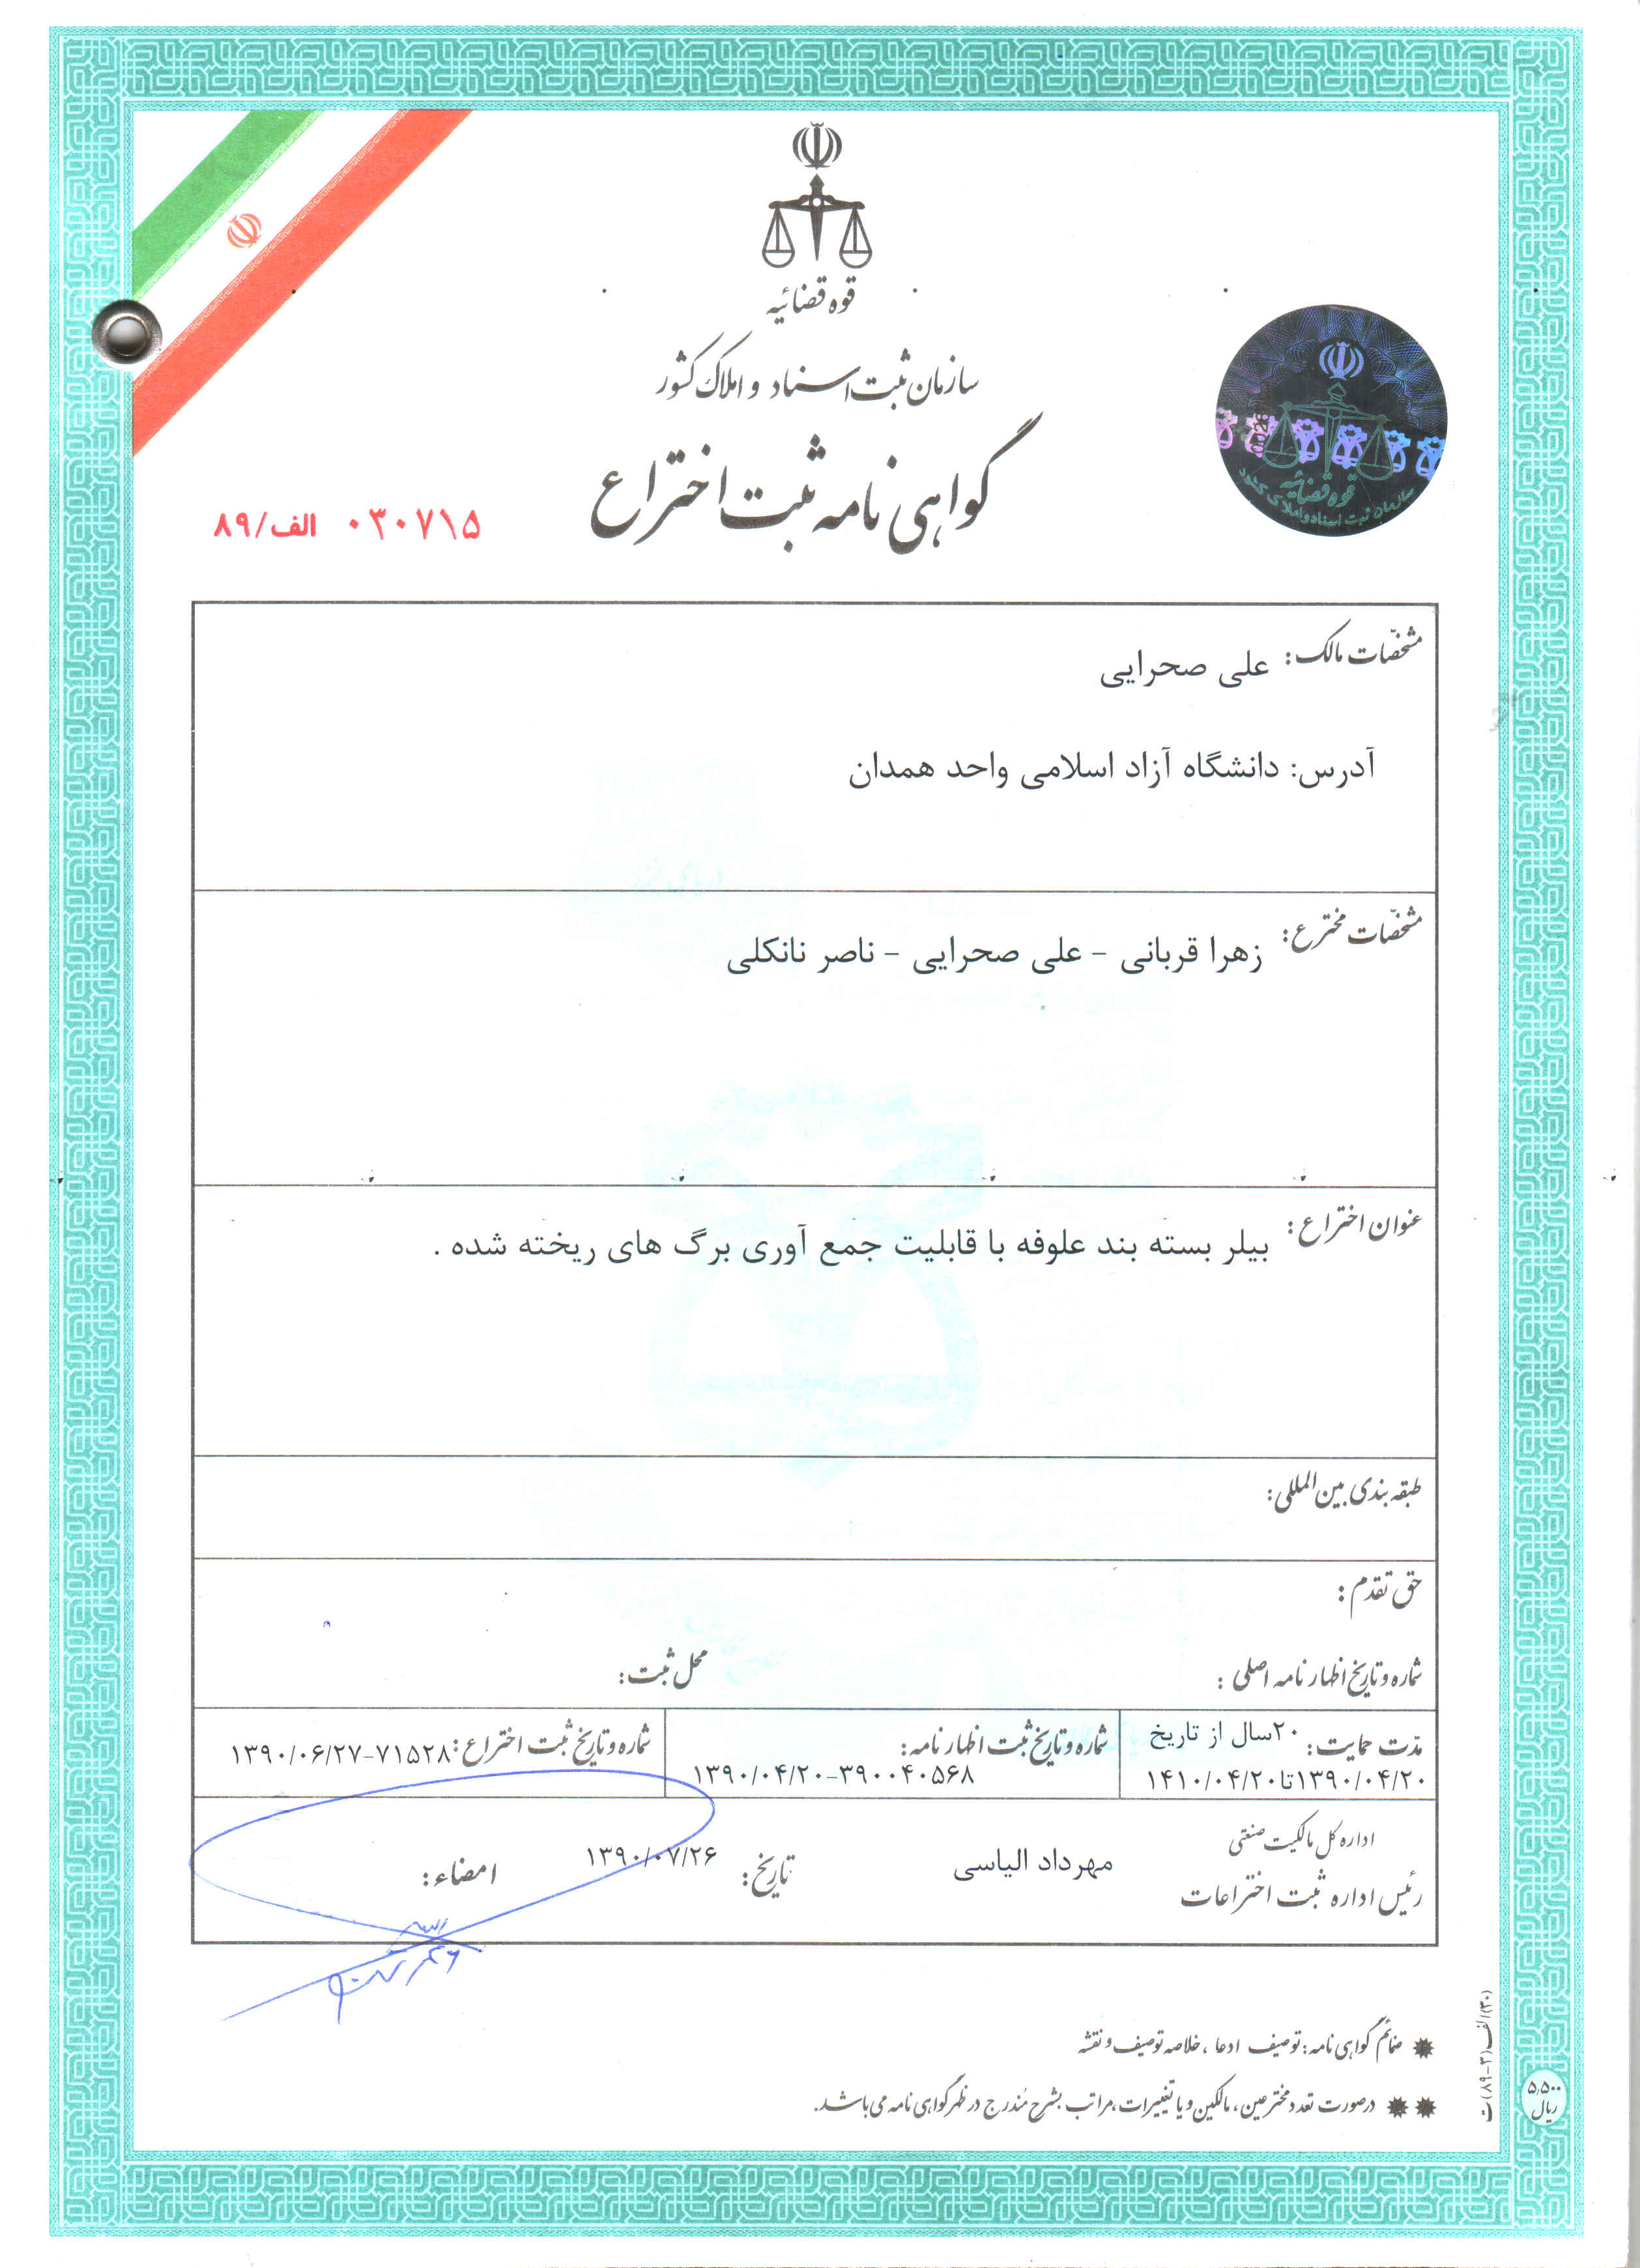 قوه قضائیه
سازمان ثبت اسناد و املاک کشور
گواهی نامه ثبت اختراع
۰۳۰۷۱۵ الف/۸۹
قوه قضائیه
سازمان ثبت اسناد و املاک کشور
مشخّصات مالک: علی صحرایی
آدرس: دانشگاه آزاد اسلامی واحد همدان
مشخّصات مخترع: زهرا قربانی - علی صحرایی - ناصر نانکلی
عنوان اختراع: بیلر بسته بند علوفه با قابلیت جمع آوری برگ های ریخته شده .
طبقه بندی بین المللی:
حق تقدم :
شماره و تاریخ اظهار نامه اصلی : محل ثبت:
مدّت حمایت: ۲۰سال از تاریخ
۱۳۹۰/۰۴/۲۰تا۱۴۱۰/۰۴/۲۰
شماره و تاریخ ثبت اظهار نامه:
۱۳۹۰/۰۴/۲۰-۳۹۰۰۴۰۵۶۸
شماره و تاریخ ثبت اختراع: ۱۳۹۰/۰۶/۲۷-۷۱۵۲۸
اداره کل مالکیت صنعتی
رئیس اداره ثبت اختراعات مهرداد الیاسی تاریخ: ۱۳۹۰/۰۷/۲۶ امضاء:
ضمائم گواهی نامه: توصیف ادعا ، خلاصه توصیف و نقشه
درصورت تعدد مخترعین، مالکین و یا تغییرات، مراتب بشرح مُندرج در ظهر گواهی نامه می باشد.
۵,۵۰۰
ریال